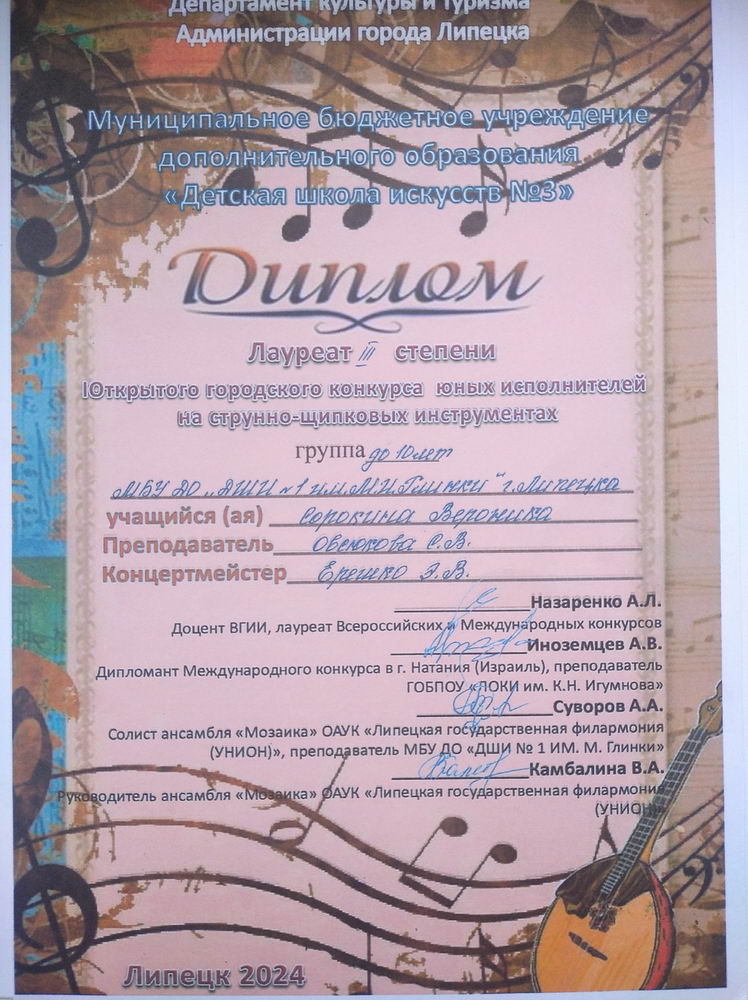 Департамент культуры и туризма
Администрации города Липецка
Муниципальное бюджетное учреждение
дополнительного образования
«Детская школа искусств №3»
Диплом
Лауреат III степени
IОткрытого городского конкурса юных исполнителей
на струнно-щипковых инструментах
группа до 10 лет
МБУ ДО „ДШИ №1 им. М.И. Глинки" г. Липецка
учащийся (ая) Сорокина Вероника
Преподаватель Овсюкова С.В.
Концертмейстер Ерешко Э.В.
Назаренко А.Л.
Доцент ВГИИ, лауреат Всероссийских и Международных конкурсов
Иноземцев А.В.
Дипломант Международного конкурса в г. Натания (Израиль), преподаватель
ГОБПОУ «ЛОКИ им. К.Н. Игумнова»
Суворов А.А.
Солист ансамбля «Мозаика» ОАУК «Липецкая государственная филармония
(УНИОН)», преподаватель МБУ ДО «ДШИ № 1 ИМ. М. Глинки»
Камбалина В.А.
Руководитель ансамбля «Мозаика» ОАУК «Липецкая государственная филармония
(УНИОН)»
Липецк 2024